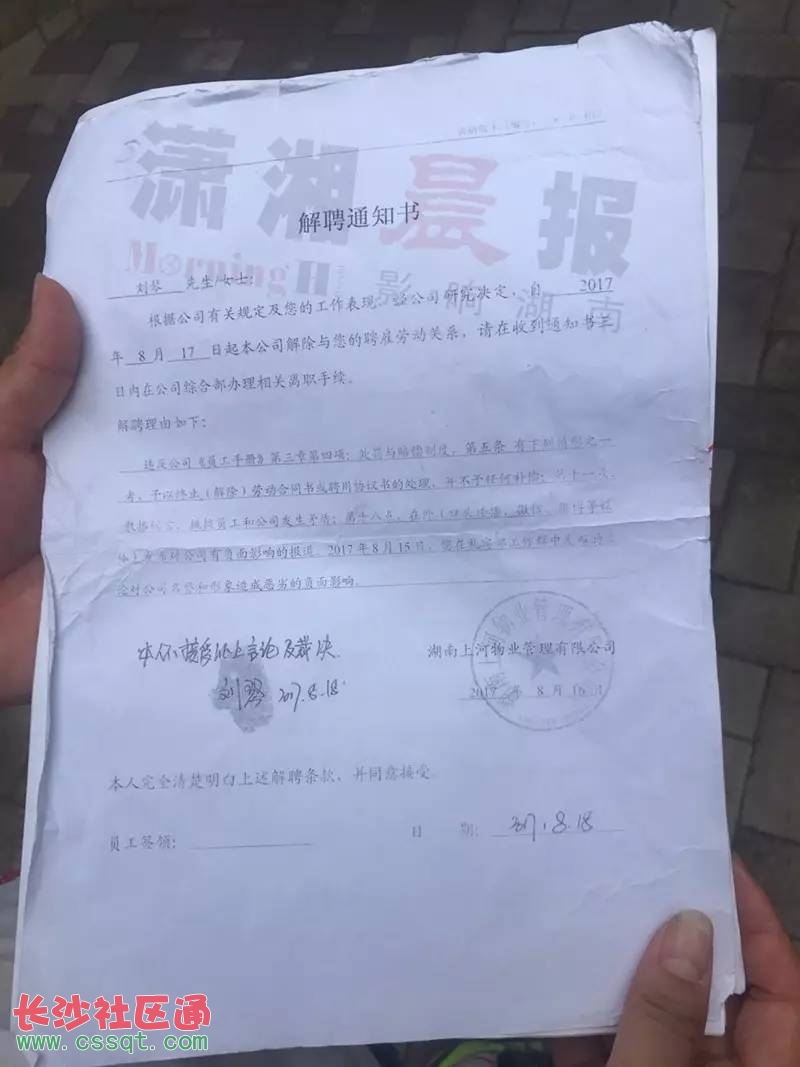 潇湘晨报
解聘通知书
Morning H
影响湖南
刘琴 先生/女士:
根据公司有关规定及您的工作表现,经公司研究决定,自 2017
年 8 月 17 日起本公司解除与您的聘雇劳动关系,请在收到通知书三
日内在公司综合部办理相关离职手续。
解聘理由如下:
违反公司《员工手册》第三章第四项:处罚与赔偿制度,第五条 有下列情形之一
者,予以终止(解除)劳动合同书或聘用协议书的处理,并不予任何补偿:第十一点、
员工和公司发生矛盾;第十八点、在外(口头
对公司有负面影响的报道。2017年8月15日,您在
对公司名誉和形象造成恶劣的负面影响。
本人不接受以上言论及裁决
湖南上河物业管理有限公司
刘琴 2017.8.18
2017 年 8 月 16 日
本人完全清楚明白上述解聘条款,并同意接受。
员工签领: 日 期: 2017.8.18
长沙社区通
www.cssqt.com